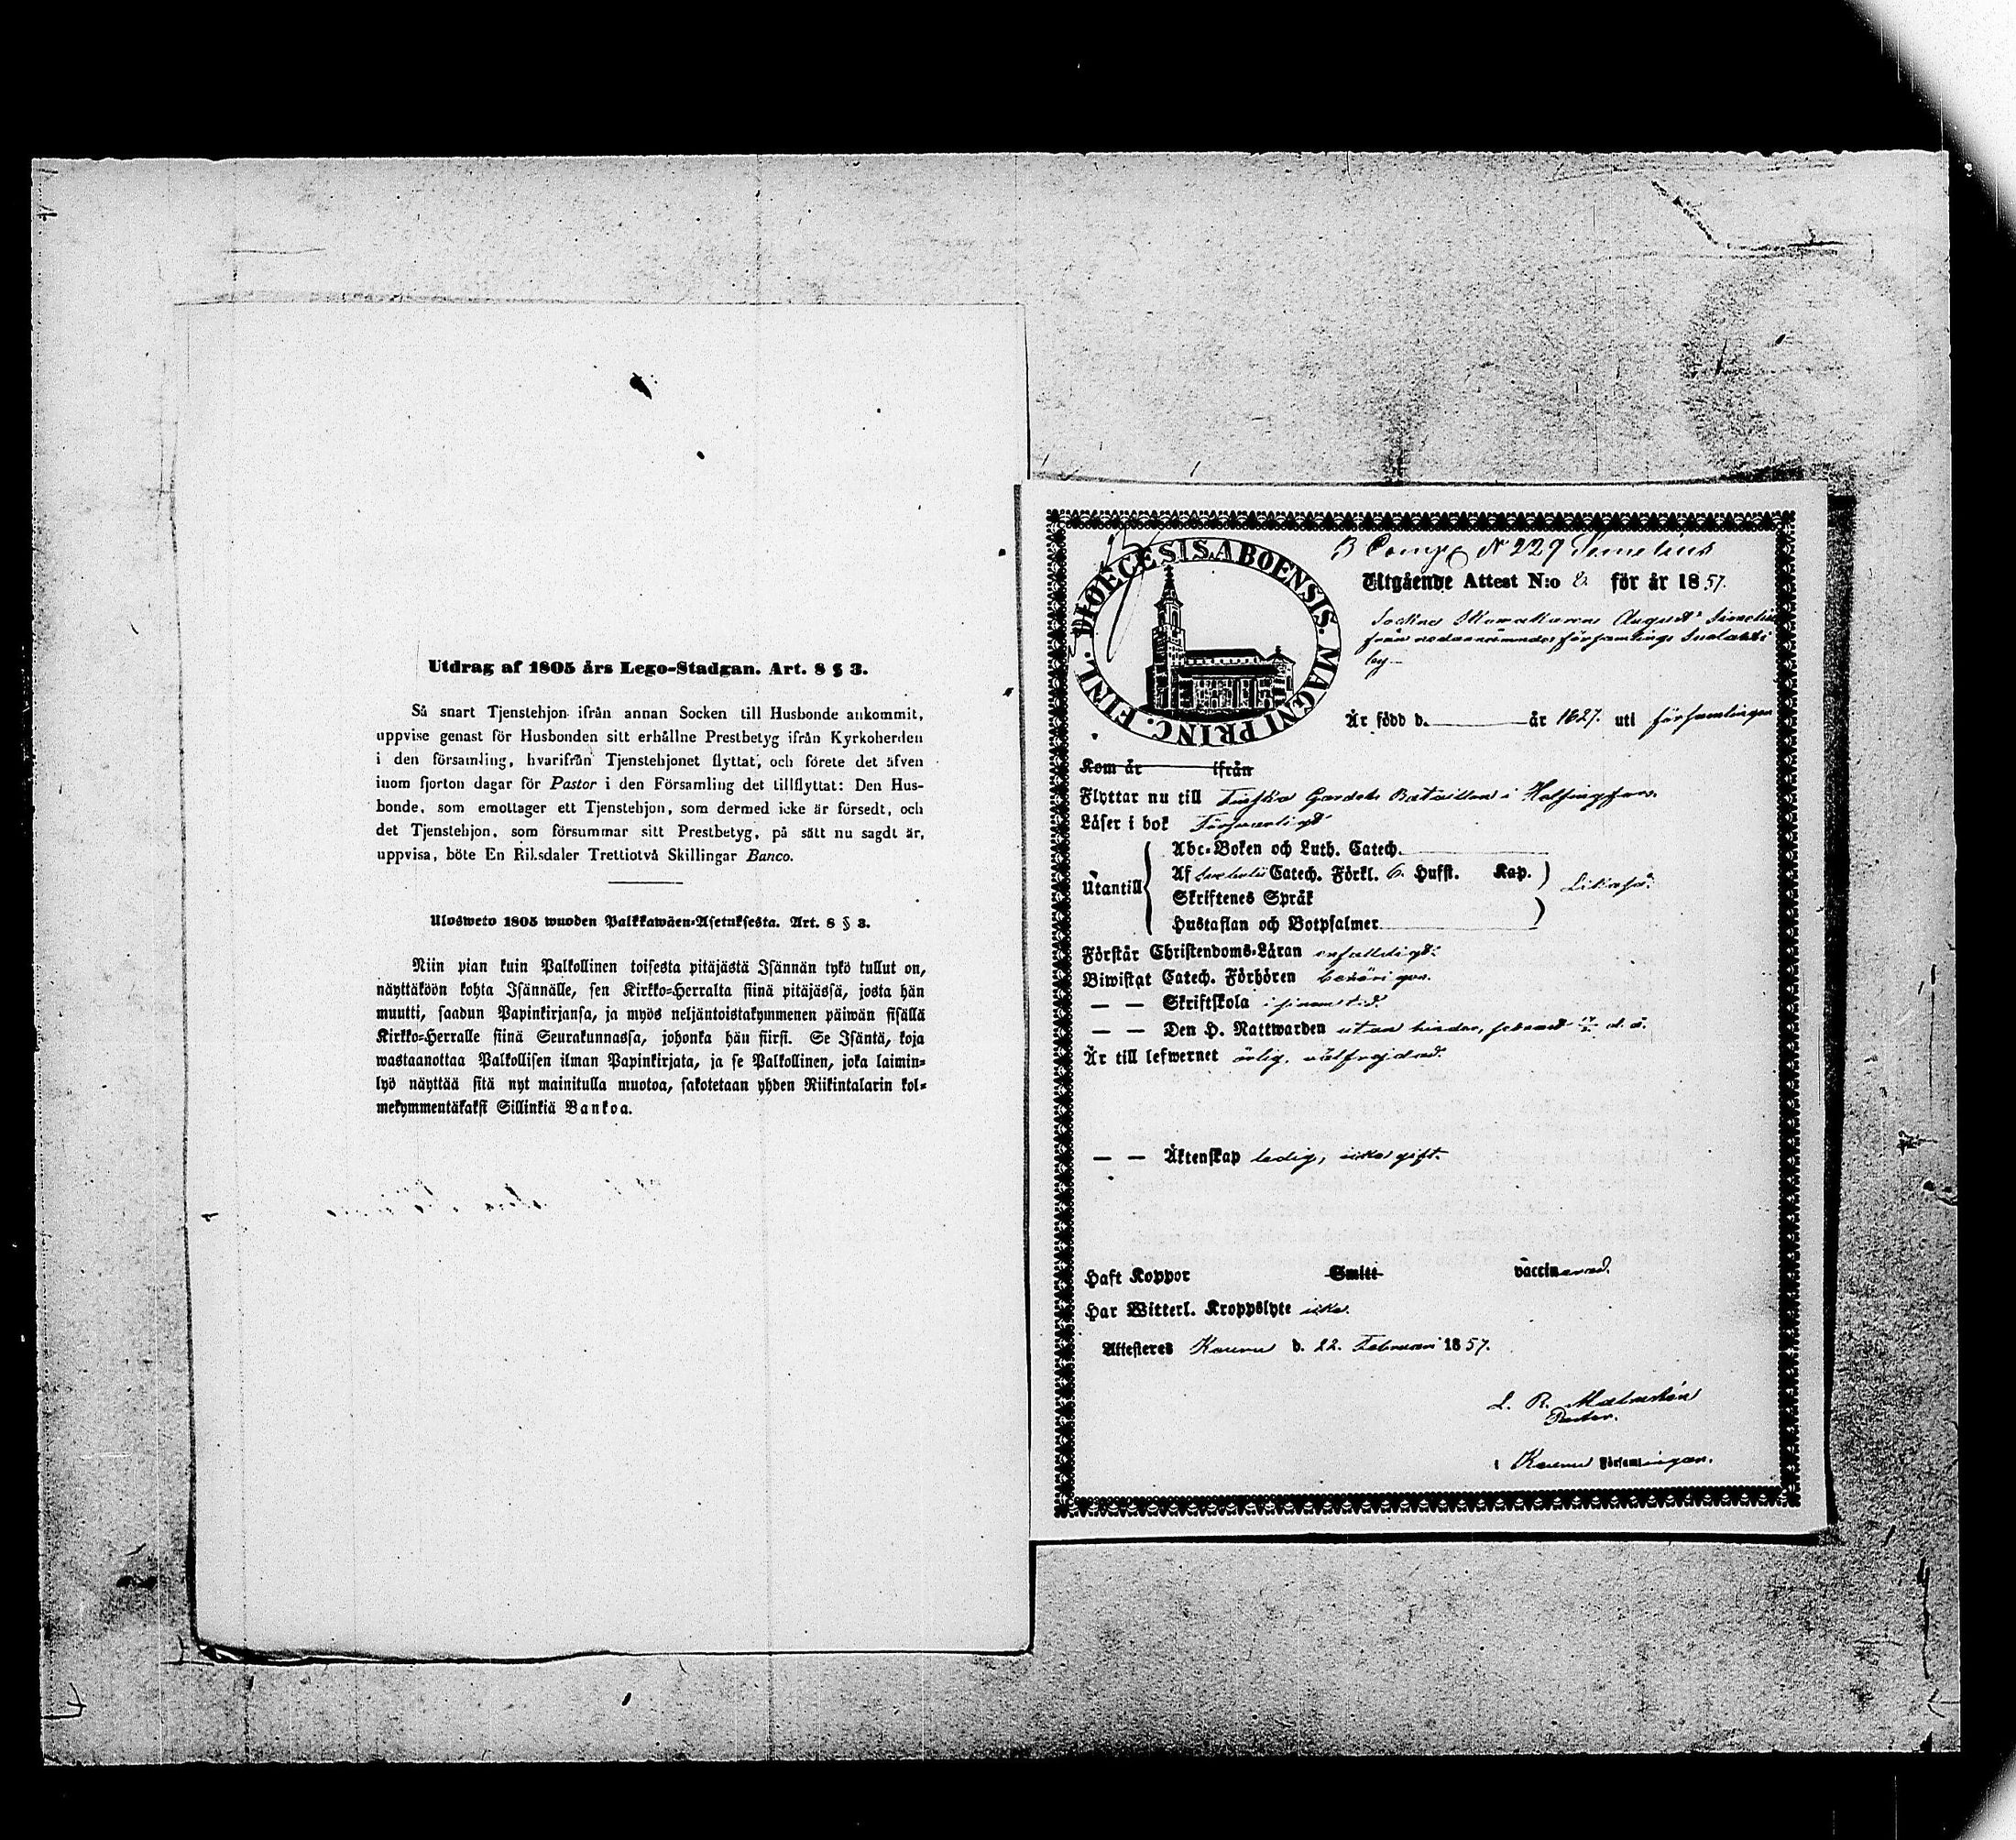 Utdrag af 1805 års Lego-Stadgan. Art. 8 § 3.
Så snart Tjenstehjon ifrån annan Socken till Husbonde ankommit,
uppvise genast för Husbonden sitt erhållne Prestbetyg ifrån Kyrkoherden
i den församling, hvarifrån Tjenstehjonet flyttat, och förete det äfven
inom fjorton dagar för Pastor i den Församling det tillflyttat: Den Hus-
bonde, som emottager ett Tjenstehjon, som dermed icke är försedt, och
det Tjenstehjon, som försummar sitt Prestbetyg, på sätt nu sagdt är,
uppvisa, böte En Riksdaler Trettiotvå Skillingar Banco.
Ulosweto 1805 wuoden Palkkawäen-Asetuksesta. Art. 8 § 3.
Niin pian kuin Palkollinen toisesta pitäjästä Isännän tykö tullut on,
näyttäköön kohta Isännälle, sen Kirkko-Herralta siinä pitäjässä, josta hän
muutti, saadun Papinkirjansa, ja myös neljäntoistakymmenen päiwän sisällä
Kirkko-Herralle siinä Seurakunnassa, johonka hän siirsi. Se Isäntä, koja
wastaanottaa Palkollisen ilman Papinkirjata, ja se Palkollinen, joka laimin-
lyö näyttää sitä nyt mainitulla muotoa, sakotetaan yhden Riikintalarin kol-
mekymmentäkaksi Sillinkiä Bankoa.
DIOECESIS ABOENSIS. MAGNI PRINC. FINL.
3 Comp N 229
Utgående Attest N:o 8. för år 1857.
Sockne Skomakaren August Simelius
från nedannämnde församlings
by
Är född d. år 1827. uti församlingen
Kom år ifrån
Flyttar nu till Finska Gardets Bataillon i Helsingfors.
Läser i bok Försvarligt
Utantill
Abc-Boken och Luth. Catech.
Af Catech. Förkl. 6. Hufst. Kap.
Skriftenes Språk
Hustaflan och Botpsalmer
Likaså.
Förstår Christendoms-Läran enfaldigt.
Biwistat Catech. Förhören behörigen.
— — Skriftskola i sinom tid.
— — Den H. Nattwarden utan hinder, d. å.
Är till lefwernet ärlig, välfrejdad.
— — Äktenskap ledig, icke gift.
Haft Koppor Smitt vaccinerad.
Har Witterl. Kroppslyte icke.
Attesteres Karuna d. 22. Februari 1857.
L. R. Malmstén
Pastor.
i Karuna Församlingen.